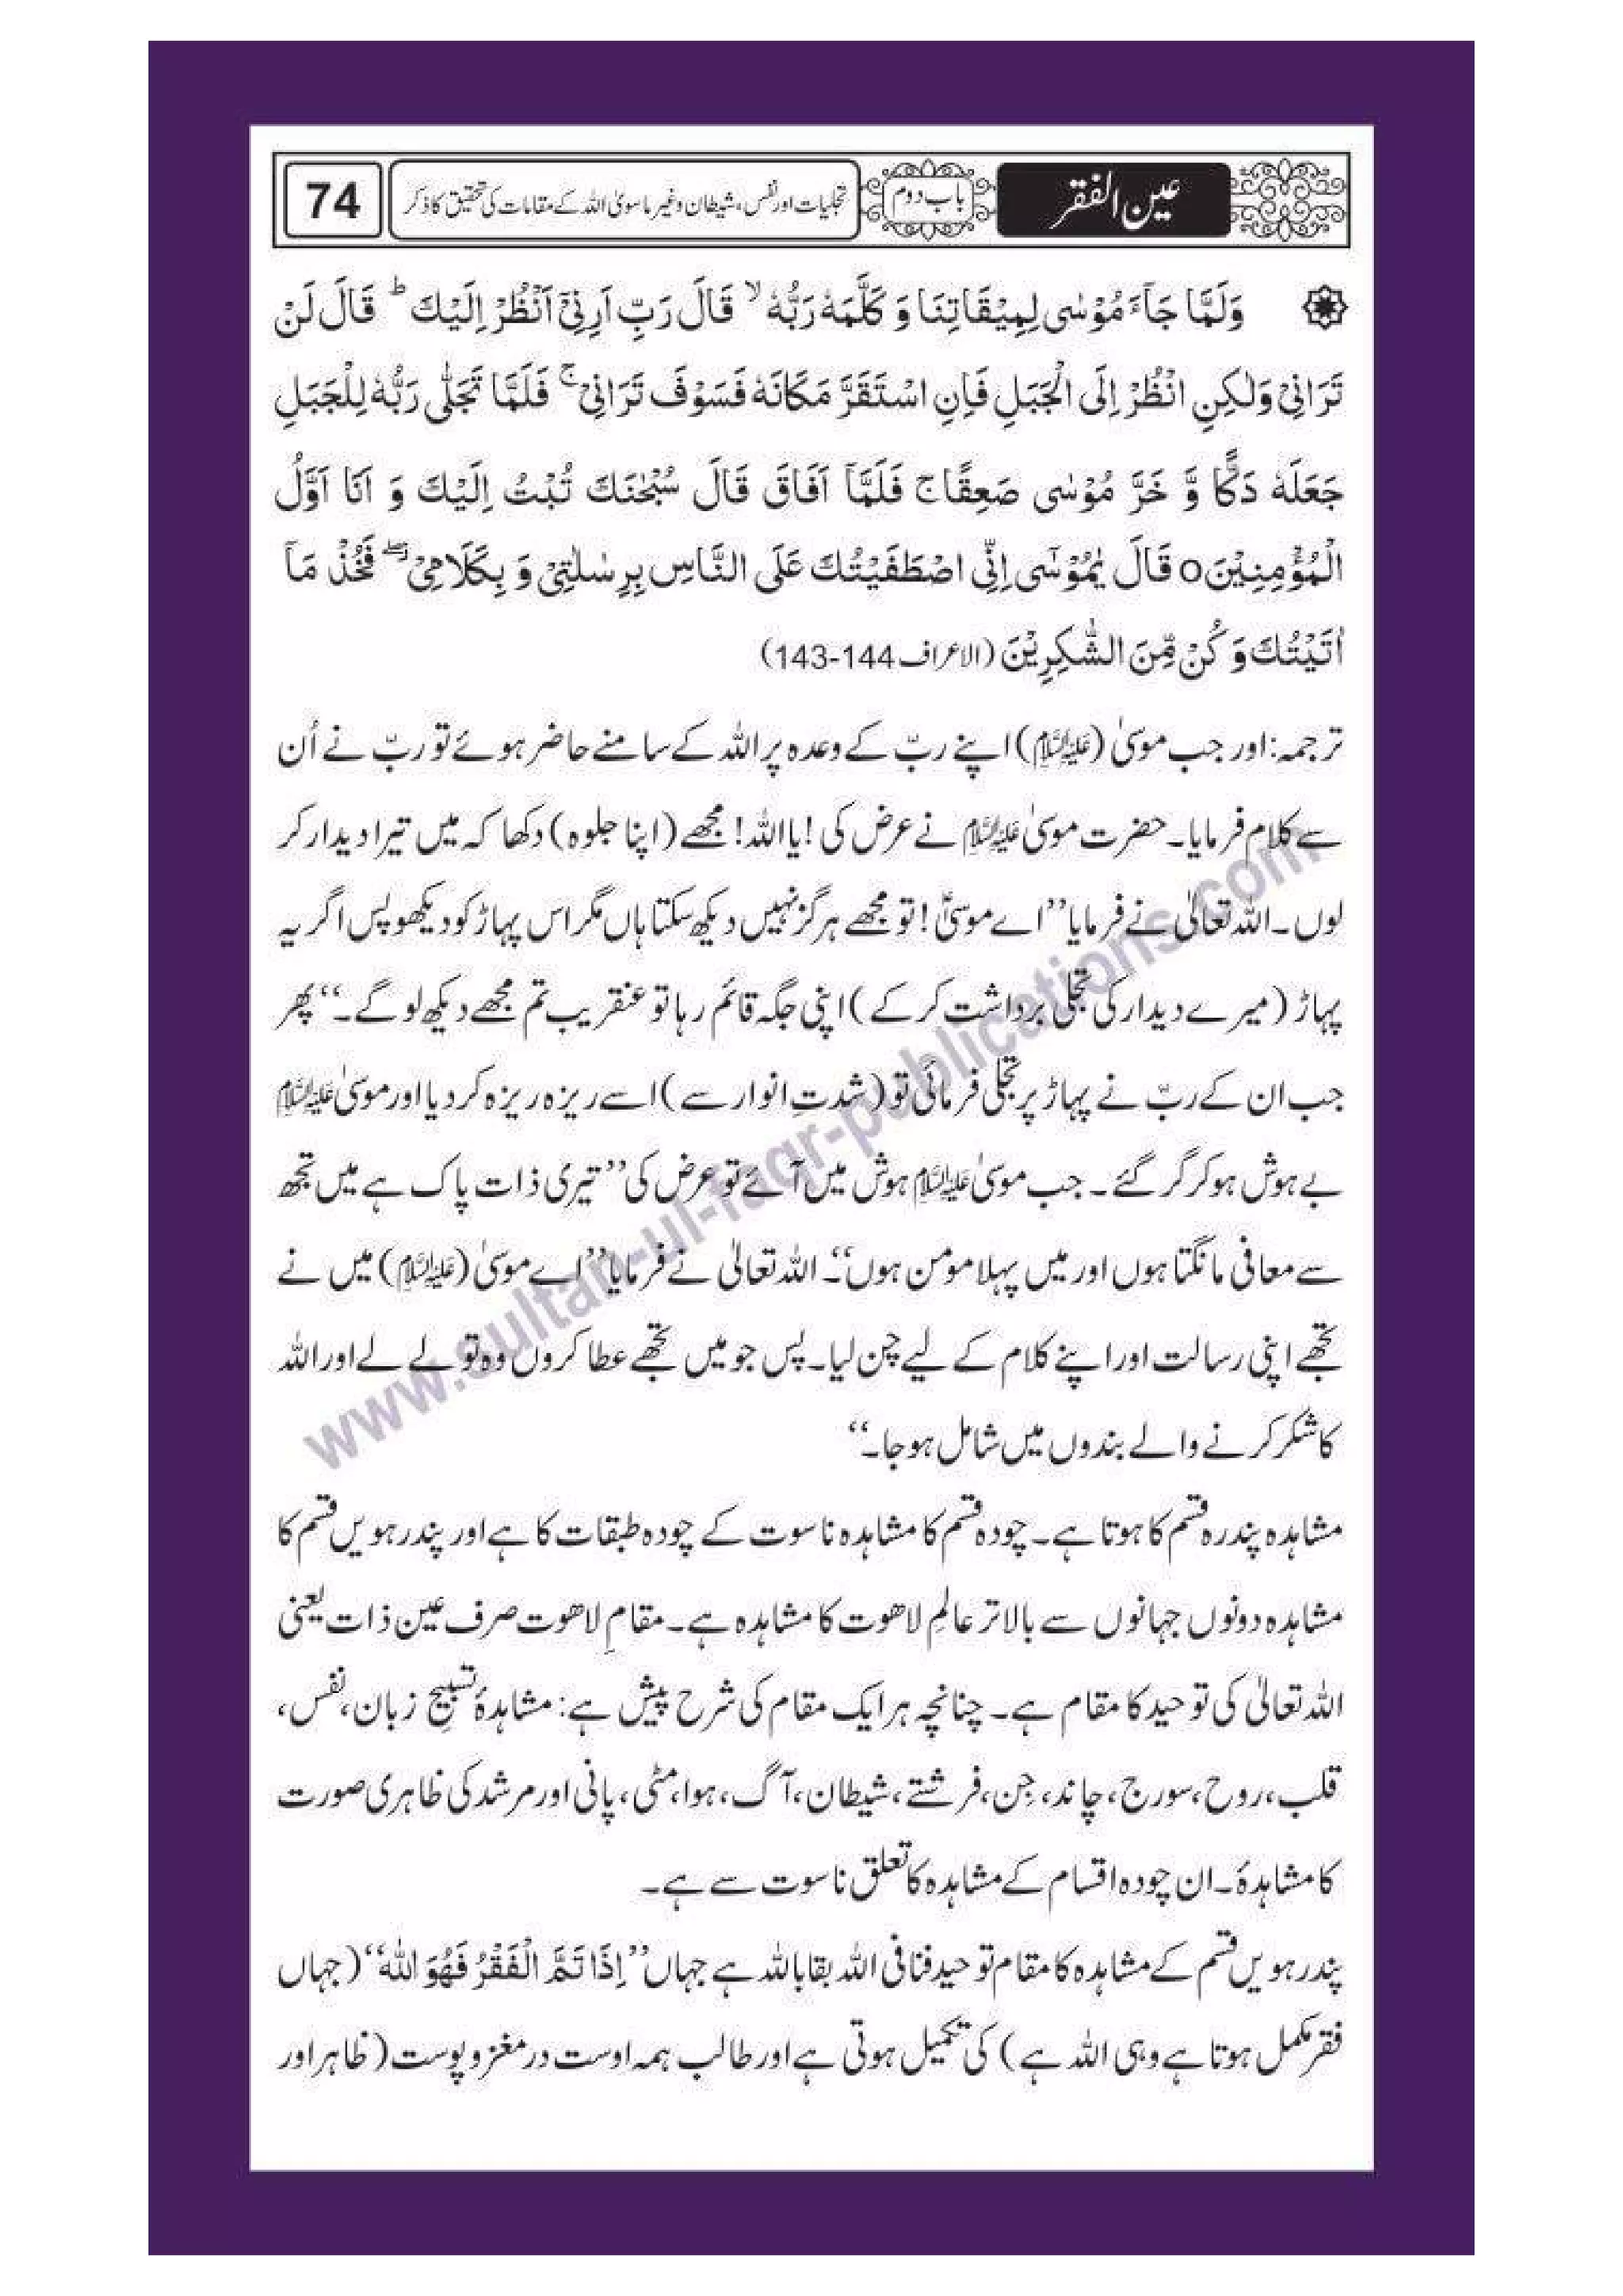 عین الفقر
باب دوم
تجلیات اور نفس، شیطان و غیر ماسویٰ اللہ کے مقامات کی تحقیق کا ذکر
74
وَلَمَّا جَآءَ مُوْسٰى لِمِيْقَاتِنَا وَ كَلَّمَهٗ رَبُّهٗ ۙ قَالَ رَبِّ اَرِنِىْٓ اَنْظُرْ اِلَيْكَ ؕ قَالَ لَنْ
تَرَانِىْ وَلٰكِنِ انْظُرْ اِلَى الْجَبَلِ فَاِنِ اسْتَقَرَّ مَكَانَهٗ فَسَوْفَ تَرَانِىْ ۚ فَلَمَّا تَجَلّٰى رَبُّهٗ لِلْجَبَلِ
جَعَلَهٗ دَكًّا وَّ خَرَّ مُوْسٰى صَعِقًا ج فَلَمَّآ اَفَاقَ قَالَ سُبْحٰنَكَ تُبْتُ اِلَيْكَ وَ اَنَا اَوَّلُ
الْمُؤْمِنِيْنَ o قَالَ يٰمُوْسٰٓى اِنِّى اصْطَفَيْتُكَ عَلَى النَّاسِ بِرِسٰلٰتِىْ وَ بِكَلَامِىْ ۖ فَخُذْ مَآ
اٰتَيْتُكَ وَ كُنْ مِّنَ الشّٰكِرِيْنَ (الاعراف 144-143)
ترجمہ: اور جب موسیٰ (علیہ السلام) اپنے ربّ کے وعدہ پر اللہ کے سامنے حاضر ہوئے تو ربّ نے اُن
سے کلام فرمایا۔ حضرت موسیٰ علیہ السلام نے عرض کی! یا اللہ! مجھے (اپنا جلوہ) دکھا کہ میں تیرا دیدار کر
لوں۔ اللہ تعالیٰ نے فرمایا ’’اے موسیٰؑ! تو مجھے ہرگز نہیں دیکھ سکتا ہاں مگر اس پہاڑ کو دیکھو پس اگر یہ
پہاڑ (میرے دیدار کی تجلی برداشت کر کے) اپنی جگہ قائم رہا تو عنقریب تم مجھے دیکھ لو گے۔‘‘ پھر
جب ان کے ربّ نے پہاڑ پر تجلی فرمائی تو (شدتِ انوار سے) اسے ریزہ ریزہ کر دیا اور موسیٰ علیہ السلام
بے ہوش ہو کر گر گئے۔ جب موسیٰ علیہ السلام ہوش میں آئے تو عرض کی ’’تیری ذات پاک ہے میں تجھ
سے معافی مانگتا ہوں اور میں پہلا مومن ہوں‘‘۔ اللہ تعالیٰ نے فرمایا ’’اے موسیٰ (علیہ السلام) میں نے
تجھے اپنی رسالت اور اپنے کلام کے لیے چن لیا۔ پس جو میں تجھے عطا کروں وہ تو لے لے اور اللہ
کا شکر کرنے والے بندوں میں شامل ہو جا۔‘‘
مشاہدہ پندرہ قسم کا ہوتا ہے۔ چودہ قسم کا مشاہدہ ناسوت کے چودہ طبقات کا ہے اور پندرہویں قسم کا
مشاہدہ دونوں جہانوں سے بالاتر عالمِ لاھوت کا مشاہدہ ہے۔ مقامِ لاھوت صرف عین ذات یعنی
اللہ تعالیٰ کی توحید کا مقام ہے۔ چنانچہ ہر ایک مقام کی شرح پیش ہے: مشاہدۂ تسبیحِ زبان، نفس،
قلب، روح، سورج، چاند، جِن، فرشتے، شیطان، آگ، ہوا، مٹی، پانی اور مرشد کی ظاہری صورت
کا مشاہدۂ۔ ان چودہ اقسام کے مشاہدہ کا تعلق ناسوت سے ہے۔
پندرہویں قسم کے مشاہدہ کا مقام توحید فنا فی اللہ بقا باللہ ہے جہاں ’’اِذَا تَمَّ الْفَقْرُ فَهُوَ اللّٰهُ‘‘ (جہاں
فقر مکمل ہوتا ہے وہی اللہ ہے) کی تکمیل ہوتی ہے اور طالب ہمہ اوست در مغز و پوست (ظاہر اور
www.sultan-ul-faqr-publications.com